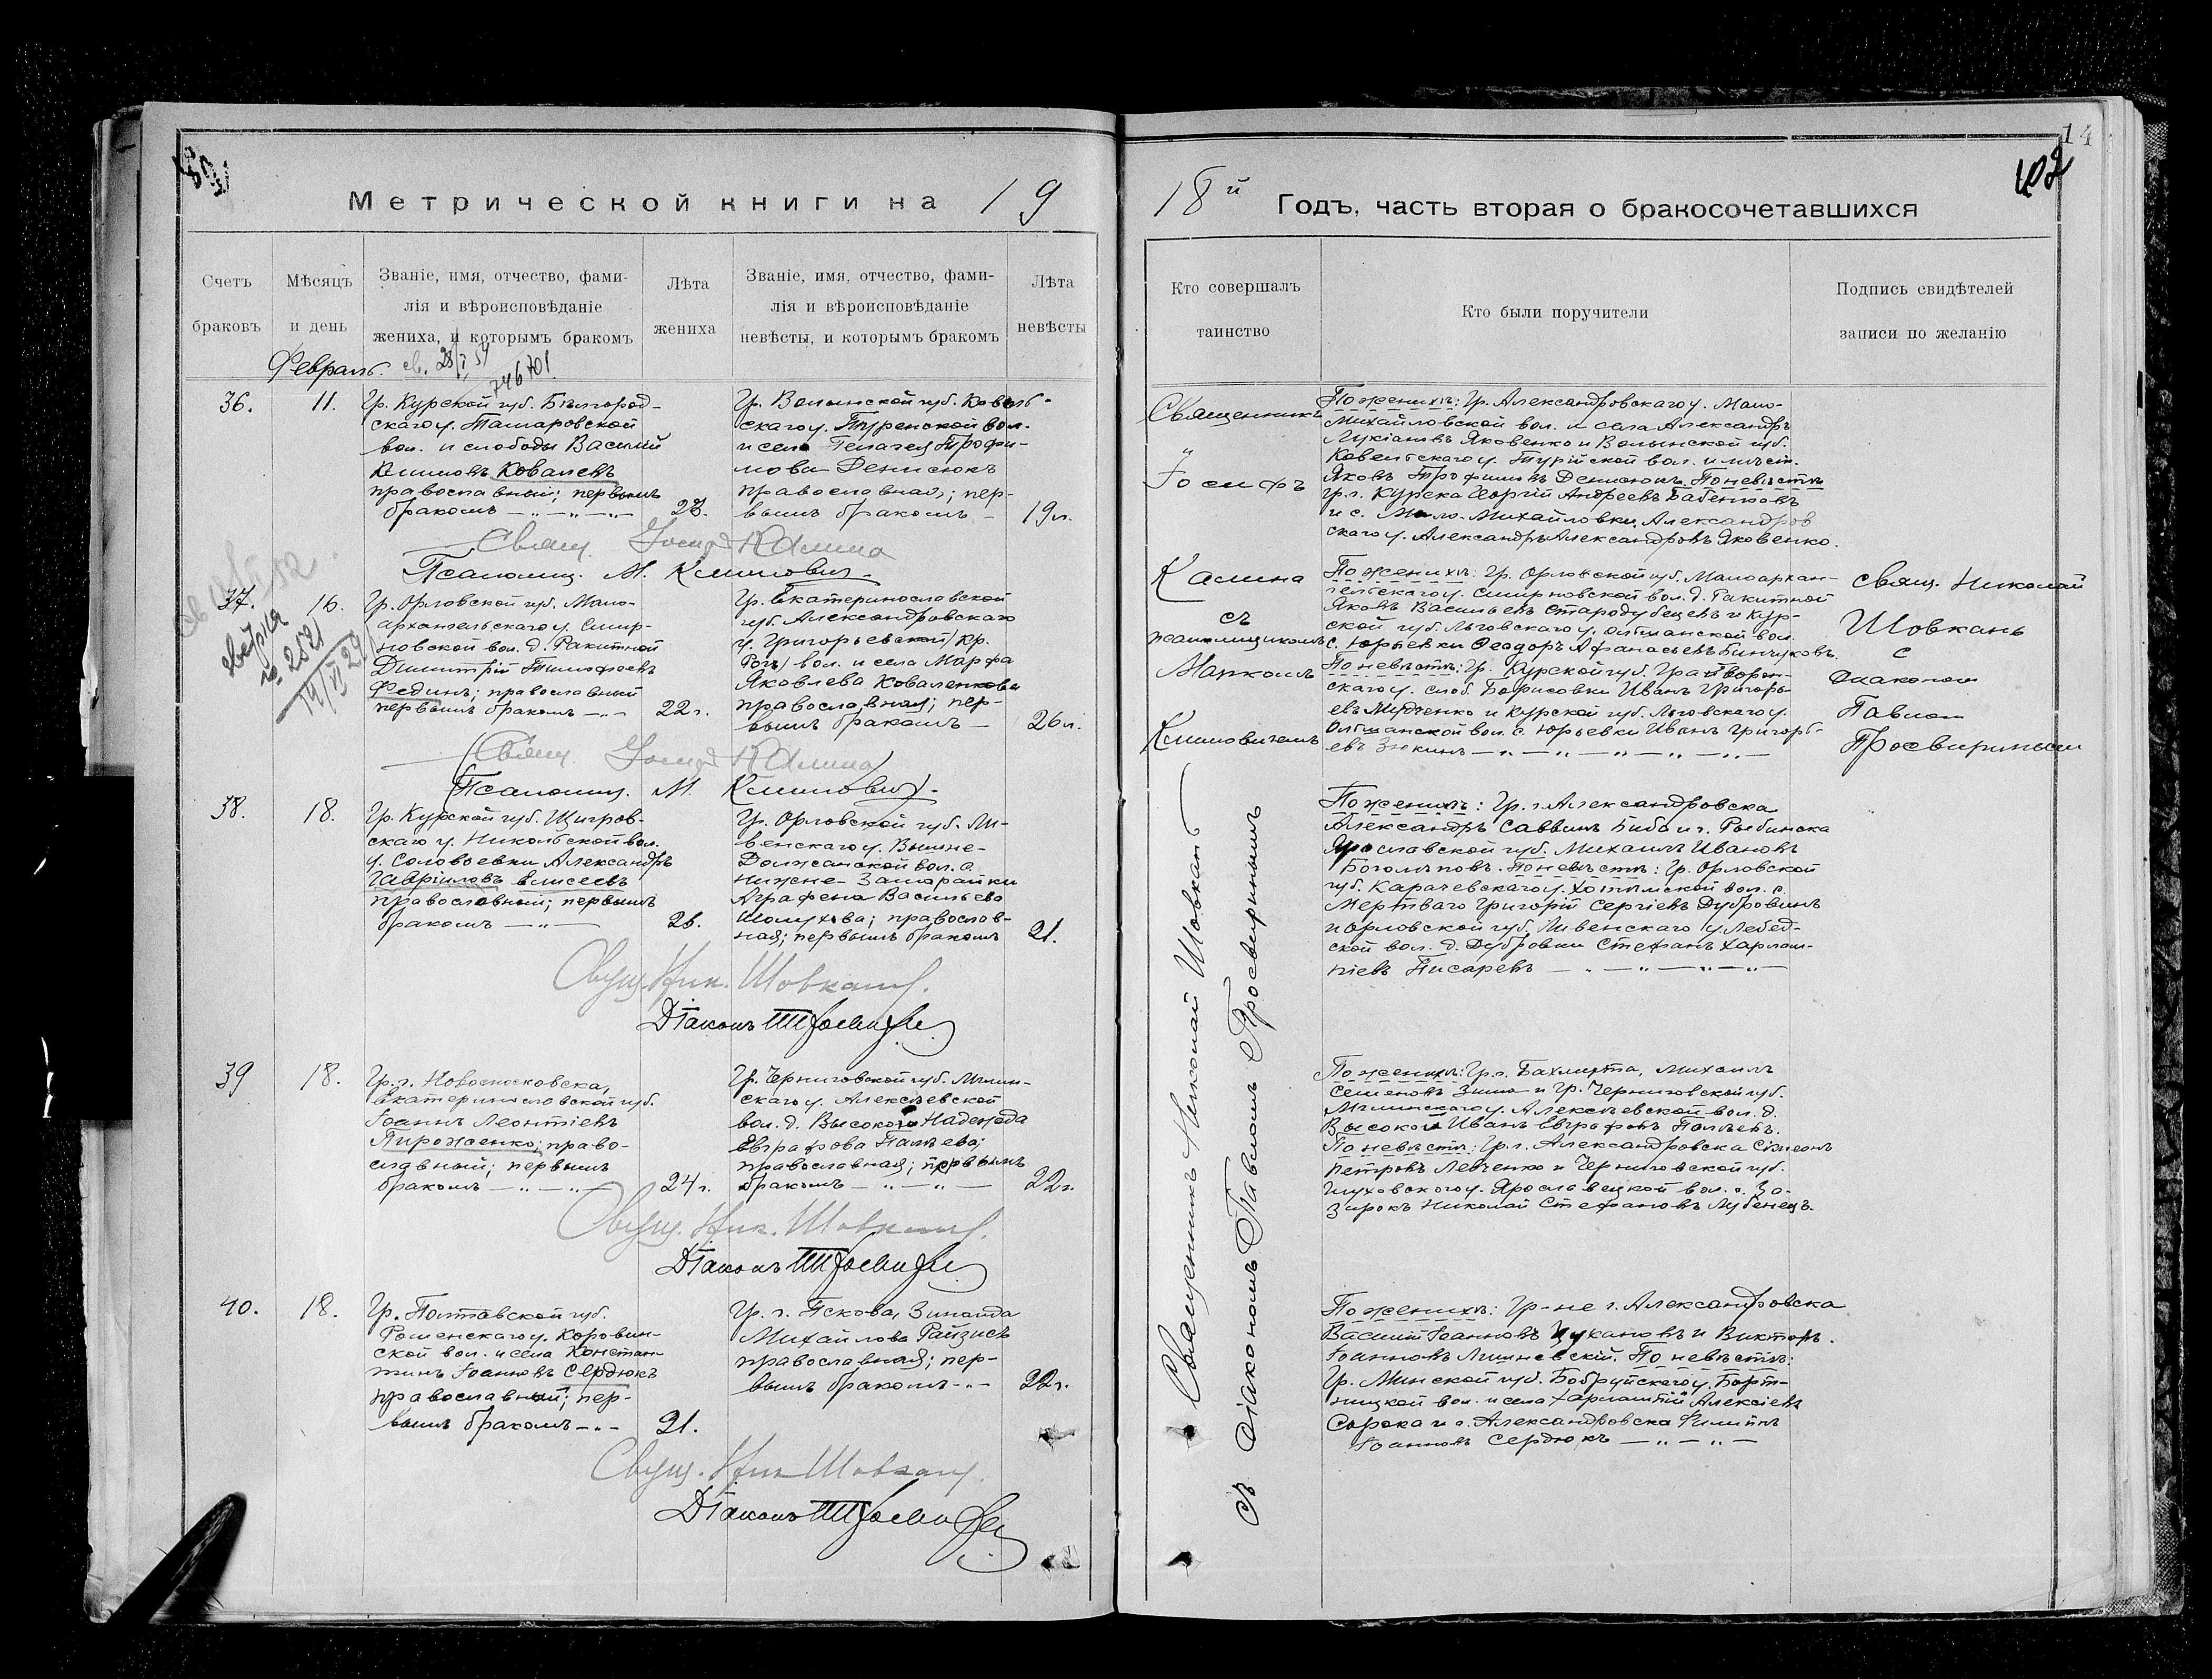 14
102
Метрической книги на 19
18й Годъ, часть вторая о бракосочетавшихся
Счетъ
браковъ
Мѣсяцъ
и день
Званіе, имя, отчество, фами-
лія и вѣроисповѣданіе
жениха, и которымъ бракомъ
Лѣта
жениха
Званіе, имя, отчество, фами-
лія и вѣроисповѣданіе
невѣсты, и которымъ бракомъ
Лѣта
невѣсты
Кто совершалъ
таинство
Кто были поручители
Подпись свидѣтелей
записи по желанію
Февраль.
746701
36.
11.
Гр. Курской губ. Бѣлгород-
скаго у. Томаровской
вол. и слободы Василій
Климовъ Ковалевъ
православный; первымъ
бракомъ
23.
Гр. Волынской губ. Ковель-
скаго у. Туренской вол.
и села Пелагея Трофи-
мова Денисюкъ
православная; пер-
вымъ бракомъ
19л.
Свящ. Іосиф Калина
Псаломщ. М. Климович
Священникъ
Іосифъ
Калина
съ
псаломщикомъ
Маркомъ
Климовичемъ
По женихѣ: Гр. Александровскаго у. Мало-
Михайловской вол. и села Александръ
Лукіановъ Яковенко и Волынской губ.
Ковельскаго у. Турійской вол. и мѣст.
Яковъ Трофимовъ Денисюкъ. По невѣстѣ
гр. г. Курска Георгій Андреевъ Бабенковъ
и с. Мало-Михайловки, Александров
скаго у. Александръ Александровъ Яковенко.
37.
16.
№ 2521
Гр. Орловской губ. Мало-
архангельскаго у. Смир-
новской вол. д. Ракитной
Димитрій Тимофеевъ
Фединъ; православный
первымъ бракомъ
22г.
Гр. Екатеринославской
губ. Александровскаго
у. Григорьевской/Кр.
Рогъ/вол. и села Марфа
Яковлева Коваленкова
православная; пер-
вымъ бракомъ
26л.
Свящ. Іосиф Калина
Псаломщ. М. Климович
По женихѣ: Гр. Орловской губ. Малоархан-
гельскаго у. Смирновской вол. д. Ракитной
Яковъ Васильевъ Стародубцевъ и Кур-
ской губ. Льговскаго у. Ольшанской вол.
с. Юрьевки Феодоръ Афанасьевъ
По невѣстѣ: Гр. Курской губ. Грайворон-
скаго у. слоб. Борисовки Иванъ Григорь-
евъ и Курской губ. Льговскаго у.
Ольшанской вол. с. Юрьевки Иванъ Григорь-
евъ Зюкинъ
Свящ. Николай
Шовкань
с
диаконом
Павлом
Просвирниным
38.
18.
Гр. Курской губ. Щигров-
скаго у. Никольской вол.
д. Соловьевки Александръ
Гавріиловъ Елисеевъ
православный; первымъ
бракомъ
Гр. Орловской губ. Ли-
венскаго у. Вышне-
Должанской вол. с.
Нижне-Замарайки
Аграфена Васильева
Шолухова; православ-
ная; первымъ бракомъ
21.
Свящ. Ник. Шовкань.
Діаконъ
Священникъ Николай Шовкань
съ діакономъ Павломъ Просвирнинымъ
По женихѣ: Гр. г. Александровска
Александръ Саввинъ Биба и г. Рыбинска
Ярославской губ. Михаилъ Ивановъ
Боголѣповъ. По невѣстѣ: Гр. Орловской
губ. Карачевскаго у. Хотимской вол. с.
Мертваго Григорій Сергіевъ Дубровинъ
и Орловской губ. Ливенскаго у. Лебед-
ской вол. д. Дубровки Стефанъ Харлам-
піевъ Писаревъ
39
18.
Гр. г. Новомосковска,
Екатеринославской губ.
Іоаннъ Леонтіевъ
Пироженко; право-
славный; первымъ
бракомъ
24г.
Гр. Черниговской губ. Мглин-
скаго у. Алексѣевской
вол. д. Высокой Надежда
Евграфова Палѣева;
православная; первымъ
бракомъ
22г.
Свящ. Ник. Шовкань.
Діаконъ
По женихѣ: Гр. г. Бахмута, Михаилъ
Семеновъ Зима и Гр. Черниговской губ.
Мглинскаго у. Алексѣевской вол. д.
Высокой Иванъ Евграфовъ Палѣевъ.
По невѣстѣ: Гр. г. Александровска Сімеонъ
Петровъ Левченко и Черниговской губ.
Глуховского у. Ярославецкой вол. с. За-
зирокъ Николай Стефановъ Лубенецъ.
40.
18.
Гр. Полтавской губ.
Роменскаго у. Коровин-
ской вол. и села Констан-
тинъ Іоанновъ Сердюкъ
православный; пер-
вымъ бракомъ
21.
Гр. г. Пскова, Зинаида
Михайлова Райзисъ
православная; пер-
вымъ бракомъ
22г.
Свящ. Ник Шовкань.
Діаконъ
По женихѣ: Гр-не г. Александровска
Василій Іоанновъ Цухановъ и Викторъ
Іоанновъ Лишневскій. По невѣстѣ:
Гр. Минской губ. Бобруйскаго у. Борт-
ницкой вол. и села Харлампій Алексіевъ
Сорока и г. Александровска Филиппъ
Іоанновъ Сердюкъ